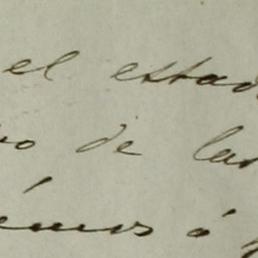 el estado
vo de las
émos á